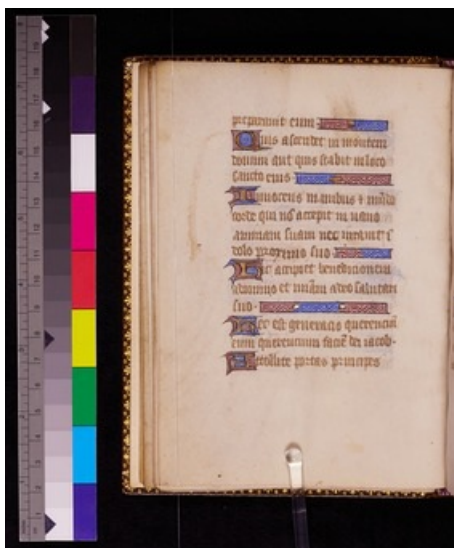 preparauit eum
Quis ascendet in montem
domini aut quis stabit in loco
sancto eius
Innocens manibus ⁊ mũdo
corde qui nõ accepit in uano
animam suam nec iurauit ĩ
dolo proximo suo
Hic accipiet benedictionem
a domino et miam a deo salutari
suo.
Hec est generacio querenciũ
eum querencium faciẽ dei iacob.
Attollite portas principes